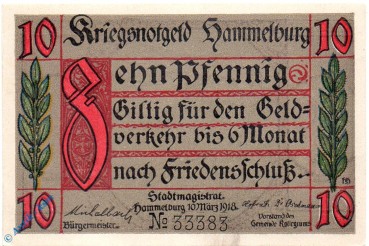 10 Kriegsnotgeld Hammelburg 10
Zehn Pfennig
Giltig für den Geld=
verkehr bis 6 Monat
nach Friedensschluß.
10 Stadtmagistrat. 10
Hammelburg 10. März 1918.
No 33383
Bürgermeister. Vorstand des
Gemeinde Kollegiums